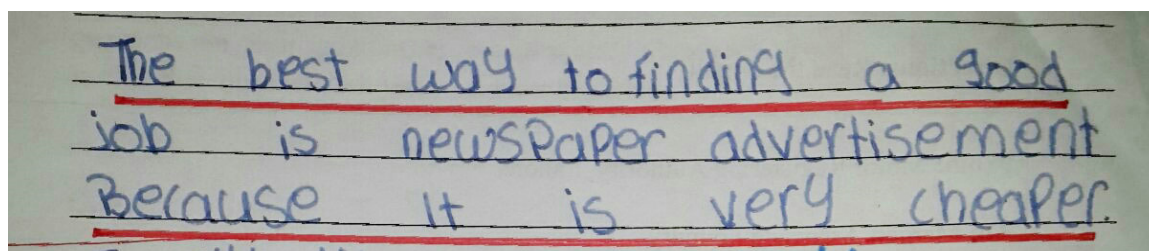 The best way to finding a good
job is newspaper advertisement
Because It is very cheaper.